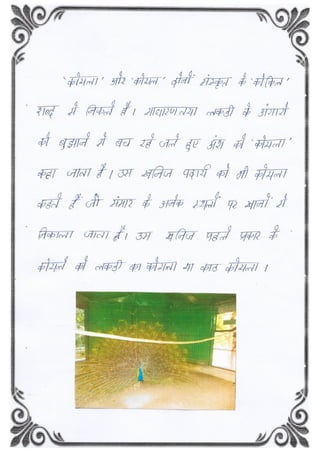 'कोयला' और 'कोयल' दोनों संस्कृत के 'कोकिल'
शब्द से निकले हैं। साधारणतया लकड़ी के अंगारों
को बुझाने से बच रहे जले हुए अंश को 'कोयला'
कहा जाता है। उस खनिज पदार्थ को भी कोयला
कहते हैं जो संसार के अनेक स्थलों पर खानों से
निकाला जाता है। उस खनिज पहले प्रकार के
कोयले को लकड़ी का कोयला या काठ कोयला।